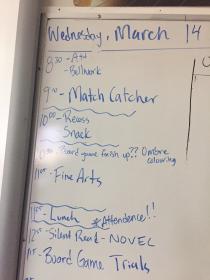 Wednesday, March 14
8:30 - Art
- Bellwork
9:10 - Match Catcher
10:00 - Recess
Snack
Board game finish up?? Ombre
colouring
11:05 - Fine Arts
- Lunch * Attendence!!
12:45 - Silent Read - NOVEL
- Board Game Trials